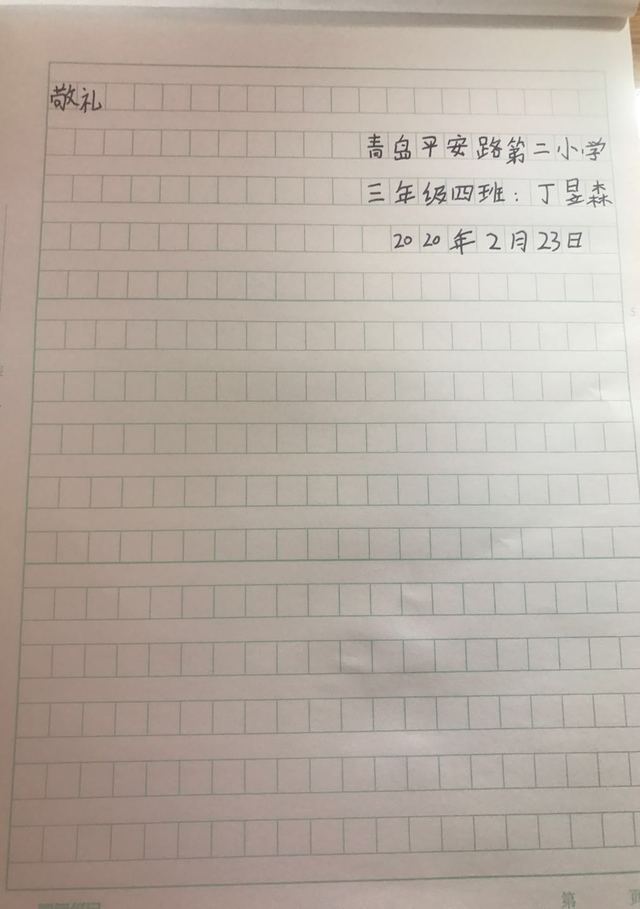 敬礼
青岛平安路第二小学
三年级四班：丁昱森
2020年2月23日
第 页